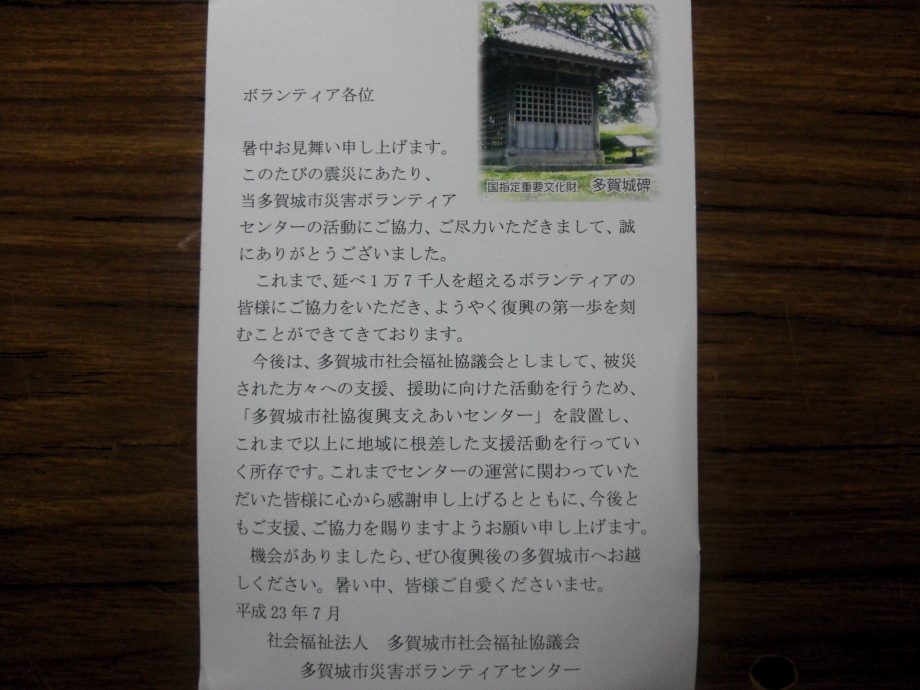 ボランティア各位
国指定重要文化財 多賀城碑
暑中お見舞い申し上げます。
このたびの震災にあたり、
当多賀城市災害ボランティア
センターの活動にご協力、ご尽力いただきまして、誠
にありがとうございました。
これまで、延べ1万7千人を超えるボランティアの
皆様にご協力をいただき、ようやく復興の第一歩を刻
むことができてきております。
今後は、多賀城市社会福祉協議会としまして、被災
された方々への支援、援助に向けた活動を行うため、
「多賀城市社協復興支えあいセンター」を設置し、
これまで以上に地域に根差した支援活動を行ってい
く所存です。これまでセンターの運営に関わっていた
だいた皆様に心から感謝申し上げるとともに、今後と
もご支援、ご協力を賜りますようお願い申し上げます。
機会がありましたら、ぜひ復興後の多賀城市へお越
しください。暑い中、皆様ご自愛くださいませ。
平成23年7月
社会福祉法人 多賀城市社会福祉協議会
多賀城市災害ボランティアセンター